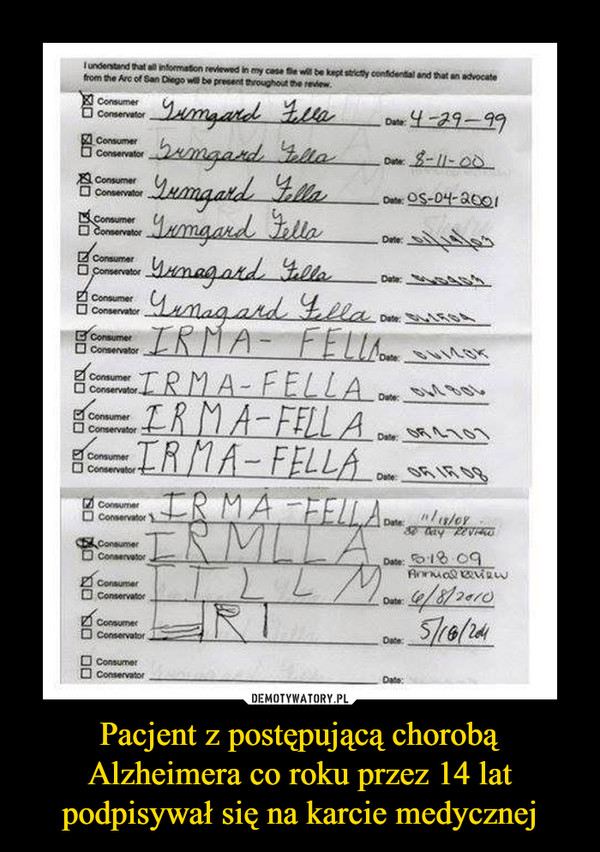 I understand that all information reviewed in my case file will be kept strictly confidential and that an advocate
from the Arc of San Diego will be present throughout the review.
Consumer
Conservator Irmgard Fella Date: 4-29-99
Consumer
Conservator Irmgard Fella Date: 8-11-00
Consumer
Conservator Irmgard Fella Date: 05-04-2001
Consumer
Conservator Irmgard Fella Date:
Consumer
Conservator Irnagard Fella Date:
Consumer
Conservator Irnagard Fella Date:
Consumer
Conservator IRMA- FELLA Date:
Consumer
Conservator IRMA-FELLA Date:
Consumer
Conservator IRMA-FELLA Date:
Consumer
Conservator IRMA-FELLA Date: 051508
Consumer
Conservator IRMA-FELLA Date: 11/18/08
30 Day REVIEW
Consumer
Conservator IRMLLA Date: 5-18-09
Annual Review
Consumer
Conservator ITLLM Date: 6/8/2010
Consumer
Conservator RI Date:
Consumer
Conservator Date:
DEMOTYWATORY.PL
Pacjent z postępującą chorobą
Alzheimera co roku przez 14 lat
podpisywał się na karcie medycznej